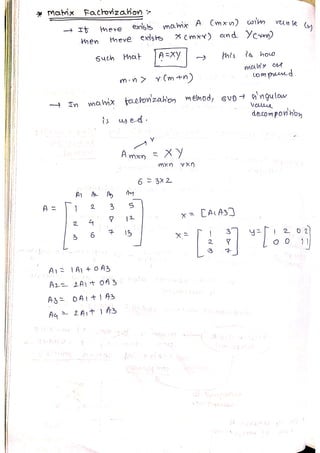 * Matrix Factorization :-
→ If there exists matrix A (m×n) with rank (r)
then there exists X (m×r) and Y(r×n)
such that A=XY → this is how
matrix are
compressed.
m.n > r(m+n)
→ In matrix factorization method, SVD → singular
value
decomposition
is used.
r
A m×n = XY
m×r r×n
6 = 3×2
A1 A2 A3 A4
A = [ 1 2 3 5
2 4 8 12
3 6 7 13 ]
x = [A1 A3]
x = [ 1 3
2 8
3 7 ]
y = [ 1 2 0 2
0 0 1 1 ]
A1 = 1A1 + 0A3
A2 = 2A1 + 0A3
A3 = 0A1 + 1A3
A4 = 2A1 + 1A3